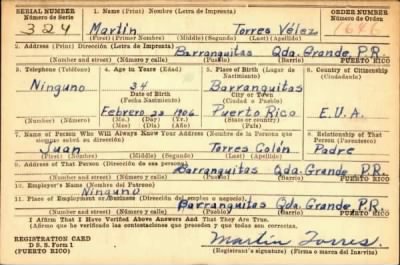 SERIAL NUMBER 1. Name (Print) Nombre (Letra de Imprenta) ORDER NUMBER
Número de Serie Número de Orden
324 Martín Torres Vélez 1646
(First) (Primer Nombre) (Middle) (Segundo) (Last) (Apellido)
2. Address (Print) Dirección (Letra de Imprenta)
Barranquitas Qda. Grande, P.R.
(Number and street) (Número y calle) (Town) (Pueblo) PUERTO RICO
3. Telephone (Teléfono) 4. Age in Years (Edad) 5. Place of Birth (Lugar de Nacimiento) 6. Country of Citizenship (Ciudadanía)
Ninguno 34 Barranquitas
Date of Birth City or Town
(Fecha Nacimiento) (Ciudad o Pueblo)
Febrero 23 1906 Puerto Rico E.U.A.
(Mo.) (Day) (Yr.)
(Mes) (Día) (Año)
7. Name of Person Who Will Always Know Your Address (Nombre de la Persona que siempre sabrá su dirección) 8. Relationship of That Person (Parentesco)
Juan Torres Colón Padre
(First) (Primer Nombre) (Middle) (Segundo) (Last) (Apellido)
9. Address of That Person (Dirección de esa persona)
Barranquitas Qda. Grande, P.R.
(Number and street) (Número y calle) (Town) (Pueblo) PUERTO RICO
10. Employer's Name (Nombre del Patrono)
Ninguno
11. Place of Employment or Business (Dirección del empleo o negocio).
Barranquitas Qda. Grande, P.R.
(Number and street) (Número y calle) (Town) (Pueblo) PUERTO RICO
I Affirm That I Have Verified Above Answers and That They are True.
(Afirmo que he verificado las contestaciones que preceden y que todas son correctas).
REGISTRATION CARD
D. S. S. Form 1
(PUERTO RICO)
Martín Torres
(Registrant's signature) (Firma o marca del Inscrito)